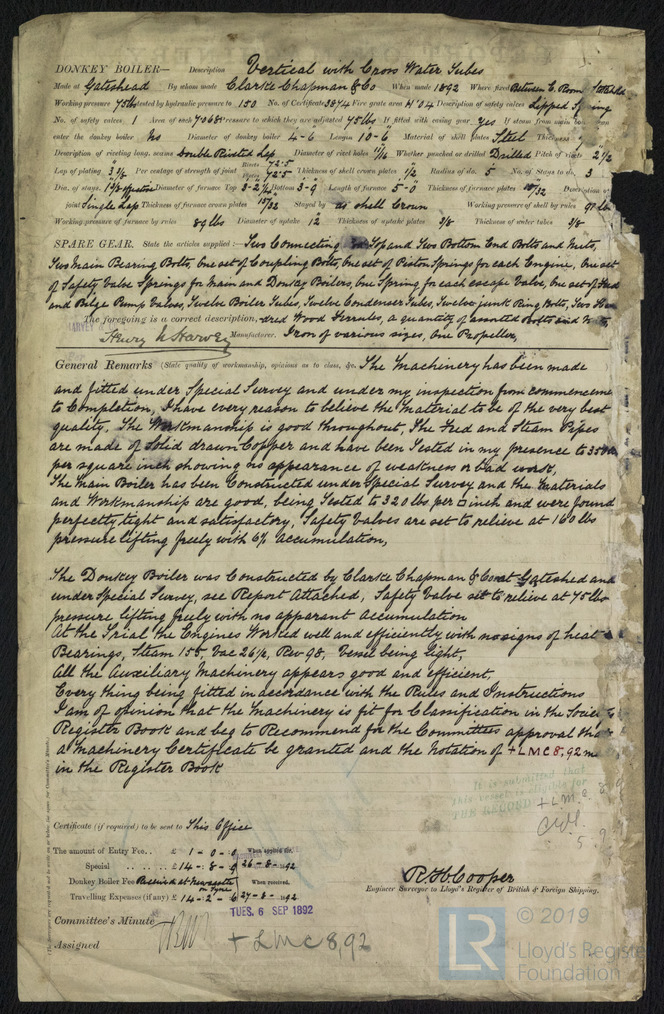 DONKEY BOILER— Description Vertical with Cross Water Tubes
Made at Gateshead By whom made Clarke Chapman & Co When made 1892 Where fixed Between E. Room
Working pressure 75 lbs tested by hydraulic pressure to 150 No. of Certificate 3874 Fire grate area Description of safety valves Lipped Spring
No. of safety valves 1 Area of each 7.068 Pressure to which they are adjusted 75 lbs If fitted with easing gear yes If steam from main
enter the donkey boiler No Diameter of donkey boiler 4-6 Length 10-6 Material of shell plates Steel Thickness
Description of riveting long. seams Double Riveted Lap Diameter of rivet holes 11/16 Whether punched or drilled Drilled Pitch of rivets 2 1/2
Lap of plating 3 3/4 Per centage of strength of joint Rivets 72.5 Plates 72.5 Thickness of shell crown plates 1/2 Radius of do. 5 No. of Stays to do. 3
Dia. of stays. 1 7/8 effective Diameter of furnace Top 3-2 1/4 Bottom 3-9 Length of furnace 5-0 Thickness of furnace plates 15/32 Description of
joint Single Lap Thickness of furnace crown plates 15/32 Stayed by as shell Crown Working pressure of shell by rules 91 lbs
Working pressure of furnace by rules 89 lbs Diameter of uptake 12 Thickness of uptake plates 3/8 Thickness of water tubes 3/8
SPARE GEAR. State the articles supplied:— Two Connecting Rod Top end Two Bottom End Bolts and Nuts,
Two Main Bearing Bolts, One set of Coupling Bolts, One set of Piston Springs for each Engine, One set
of Safety Valve Springs for Main and Donkey Boilers, One Spring for each escape Valve, One set of Feed
and Bilge Pump Valves, Twelve Boiler Tubes, Twelve Condenser Tubes, Twelve junk Ring Bolts, Two Hun
The foregoing is a correct description, -dred Wood Ferrules, a quantity of assorted Bolts and Nuts,
Manufacturer. Iron of various sizes, One Propeller,
General Remarks (State quality of workmanship, opinions as to class, &c. The Machinery has been made
and fitted under Special Survey and under my inspection from commenceme
to Completion, I have every reason to believe the Material to be of the very best
quality, The Workmanship is good throughout, The Feed and Steam Pipes
are made of Solid drawn Copper and have been Tested in my presence to 350 lbs
per square inch showing no appearance of weakness or bad work,
The Main Boiler has been Constructed under Special Survey and the Materials
and Workmanship are good, being Tested to 320 lbs per □ inch and were found
perfectly tight and satisfactory, Safety Valves are set to relieve at 160 lbs
pressure lifting freely with 6% accumulation,
The Donkey Boiler was Constructed by Clarke Chapman & Co at Gateshead and
under Special Survey, see Report Attached, Safety Valve set to relieve at 75 lbs
pressure lifting freely with no apparent accumulation
At the Trial the Engines Worked well and efficiently with no signs of heat
Bearings, Steam 155, Vac 26 1/2, Rev 98, Vessel being light,
All the Auxiliary Machinery appears good and efficient,
Every thing being fitted in accordance with the Rules and Instructions
I am of opinion that the Machinery is fit for Classification in the Society
Register Book and beg to Recommend for the Committees approval that
a Machinery Certificate be granted and the Notation of +LMC 8,92 m
in the Register Book
It is submitted that
this vessel is eligible for
THE RECORD
+ L.M.C. 8.9
Certificate (if required) to be sent to This Office
The amount of Entry Fee.. £ 1 - 0 - 0 When applied for,
Special .. .. £ 14 - 8 - 9 26-8-1892
Donkey Boiler Fee Received at Newcastle on Tyne When received,
Travelling Expenses (if any) £ 14-2-6 27-8-1892
R H Cooper
Engineer Surveyor to Lloyd's Register of British & Foreign Shipping.
TUES. 6 SEP 1892
Committee's Minute
Assigned + LMC 8,92
LR
© 2019
Lloyd's Register
Foundation